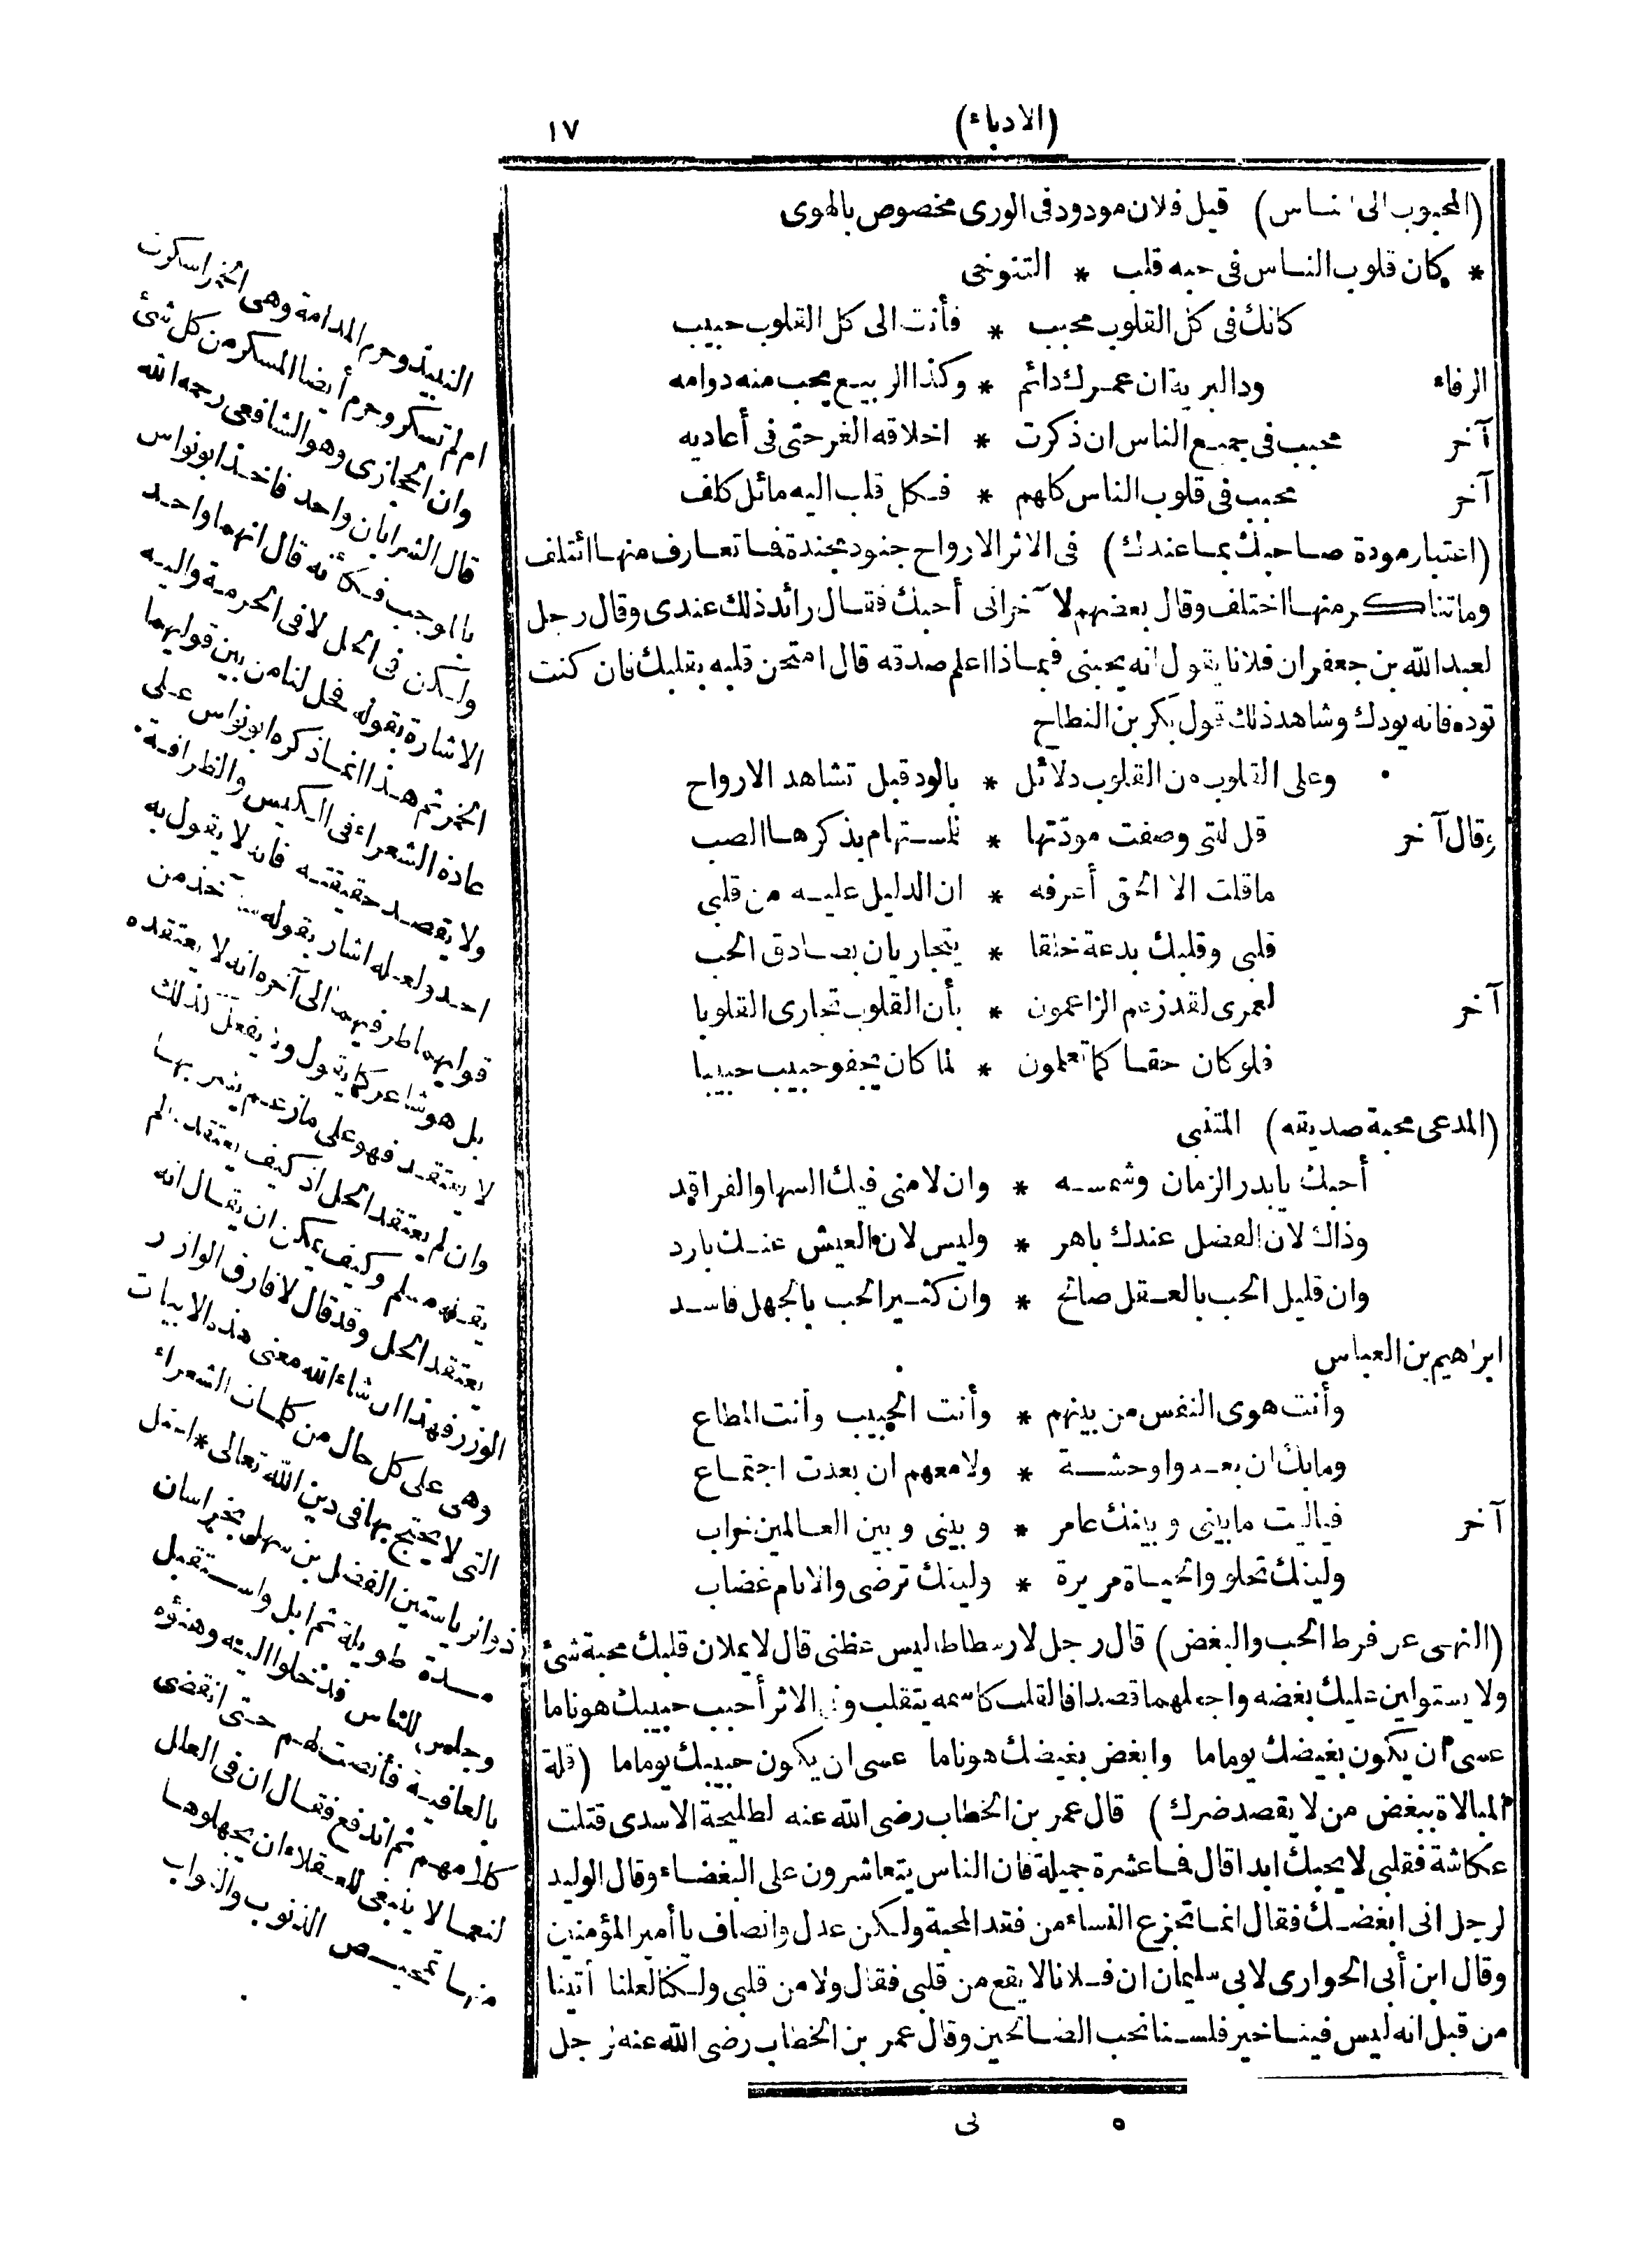 (الادباء) ١٧
(المحبوب الى الناس) قيل فلان مودود فى الورى مخصوص بالهوى
* كأن قلوب الناس فى حبه قلب * التنوخى
كانك فى كل القلوب محبب * فأنت الى كل القلوب حبيب
الرفاء ود البرية ان عمرك دائم * وكذا الربيع يحب منه دوامه
آخر محبب فى جميع الناس ان ذكرت * اخلاقه الغر حتى فى أعاديه
آخر محبب فى قلوب الناس كلهم * فكل قلب اليه مائل كلف
(اعتبار مودة صاحبك بما عندك) فى الاثر الارواح جنود مجندة فما تعارف منها ائتلف
وما تناكر منها اختلف وقال بعضهم لآخر انى أحبك فقال رائد ذلك عندى وقال رجل
لعبد الله بن جعفر ان فلانا يقول انه يحبنى فبماذا اعلم صدقه قال امتحن قلبه بقلبك فان كنت
توده فانه يودك وشاهد ذلك قول بكر بن النطاح
وعلى القلوب من القلوب دلائل * بالود قبل تشاهد الارواح
وقال آخر قل للتى وصفت مودّتها * للمستهام بذكرها الصب
ما قلت الا الحق أعرفه * ان الدليل عليه من قلبى
قلبى وقلبك بدعة خلقا * يتجاريان بصادق الحب
آخر لعمرى لقد زعم الزاعمون * بأن القلوب تجارى القلوبا
فلو كان حقا كما تعلمون * لما كان يجفو حبيب حبيبا
(المدعى محبة صديقه) المتنبى
أحبك يا بدر الزمان وشمسه * وان لامنى فيك السها والفراقد
وذاك لان الفضل عندك باهر * وليس لان العيش عندك بارد
وان قليل الحب بالعقل صالح * وان كثير الحب بالجهل فاسد
ابراهيم بن العباس
وأنت هوى النفس من بينهم * وأنت الحبيب وأنت المطاع
وما بك ان بعدوا وحشة * ولا معهم ان بعدت اجتماع
آخر فيا ليت ما بينى وبينك عامر * وبينى وبين العالمين خراب
وليتك تحلو والحياة مريرة * وليتك ترضى والانام غضاب
(النهى عن فرط الحب والبغض) قال رجل لارسطاطاليس عظنى قال لا يملان قلبك محبة شئ
ولا يستولين عليك بغضه واجعلهما قصدا فالقلب كاسمه يتقلب وفى الاثر أحبب حبيبك هونا ما
عسى ان يكون بغيضك يوما ما وابغض بغيضك هونا ما عسى ان يكون حبيبك يوما ما (قلة
المبالاة ببغض من لا يقصد ضرك) قال عمر بن الخطاب رضى الله عنه لطليحة الاسدى قتلت
عكاشة فقلبى لا يحبك ابدا قال فعاشرة جميلة فان الناس يتعاشرون على البغضاء وقال الوليد
لرجل انى ابغضك فقال انما تجزع النساء من فقد المحبة ولكن عدل وانصاف يا أمير المؤمنين
وقال ابن أبى الحوارى لابى سليمان ان فلانا لا يقع من قلبى فقال ولا من قلبى ولكنا لعلنا أتينا
من قبل انه ليس فينا خير فلسنا نحب الصالحين وقال عمر بن الخطاب رضى الله عنه لرجل
٥ نى
النبيذ وحرم المدامة وهى الخمر اسكرت
ام لم تسكر وحرم أيضا المسكر من كل شئ
وان الحجازى وهو الشافعى رحمه الله
قال الشرابان واحد فاخذ ابو نواس
بالموجب فكأنه قال انهما واحد
ولكن فى الحل لا فى الحرمة واليه
الاشارة بقوله فحل لنا من بين قوليهما
الخمر ثم هذا انما ذكره ابو نواس على
عادة الشعراء فى الكيس والظرافة
ولا يقصد حقيقته فانه لا يقول به
احد ولعله اشار بقوله سآخذ من
قوليهما طرفيهما الى آخره انه لا يعتقده
بل هو شاعر كما يقول ولا يفعل كذلك
لا يعتقد فهو على ما زعم يشربها
وان لم يعتقد الحل اذ كيف يعتقد الم
يقله مسلم وكيف يمكن ان يقال انه
يعتقد الحل وقد قال لا فارق الوازر
الوزر فهذا ان شاء الله معنى هذه الابيات
وهى على كل حال من كلمات الشعراء
التى لا يحتج بها فى دين الله تعالى * اعتل
ذو الرياستين الفضل بن سهل بخراسان
مدة طويلة ثم ابل واستقبل
وجلس للناس فدخلوا اليه وهنؤه
بالعافية فأنصت لهم حتى انقضى
كلامهم ثم اندفع فقال ان فى العلل
لنعما لا ينبغى للعقلاء ان يجهلوها
منها تمحيص الذنوب والثواب